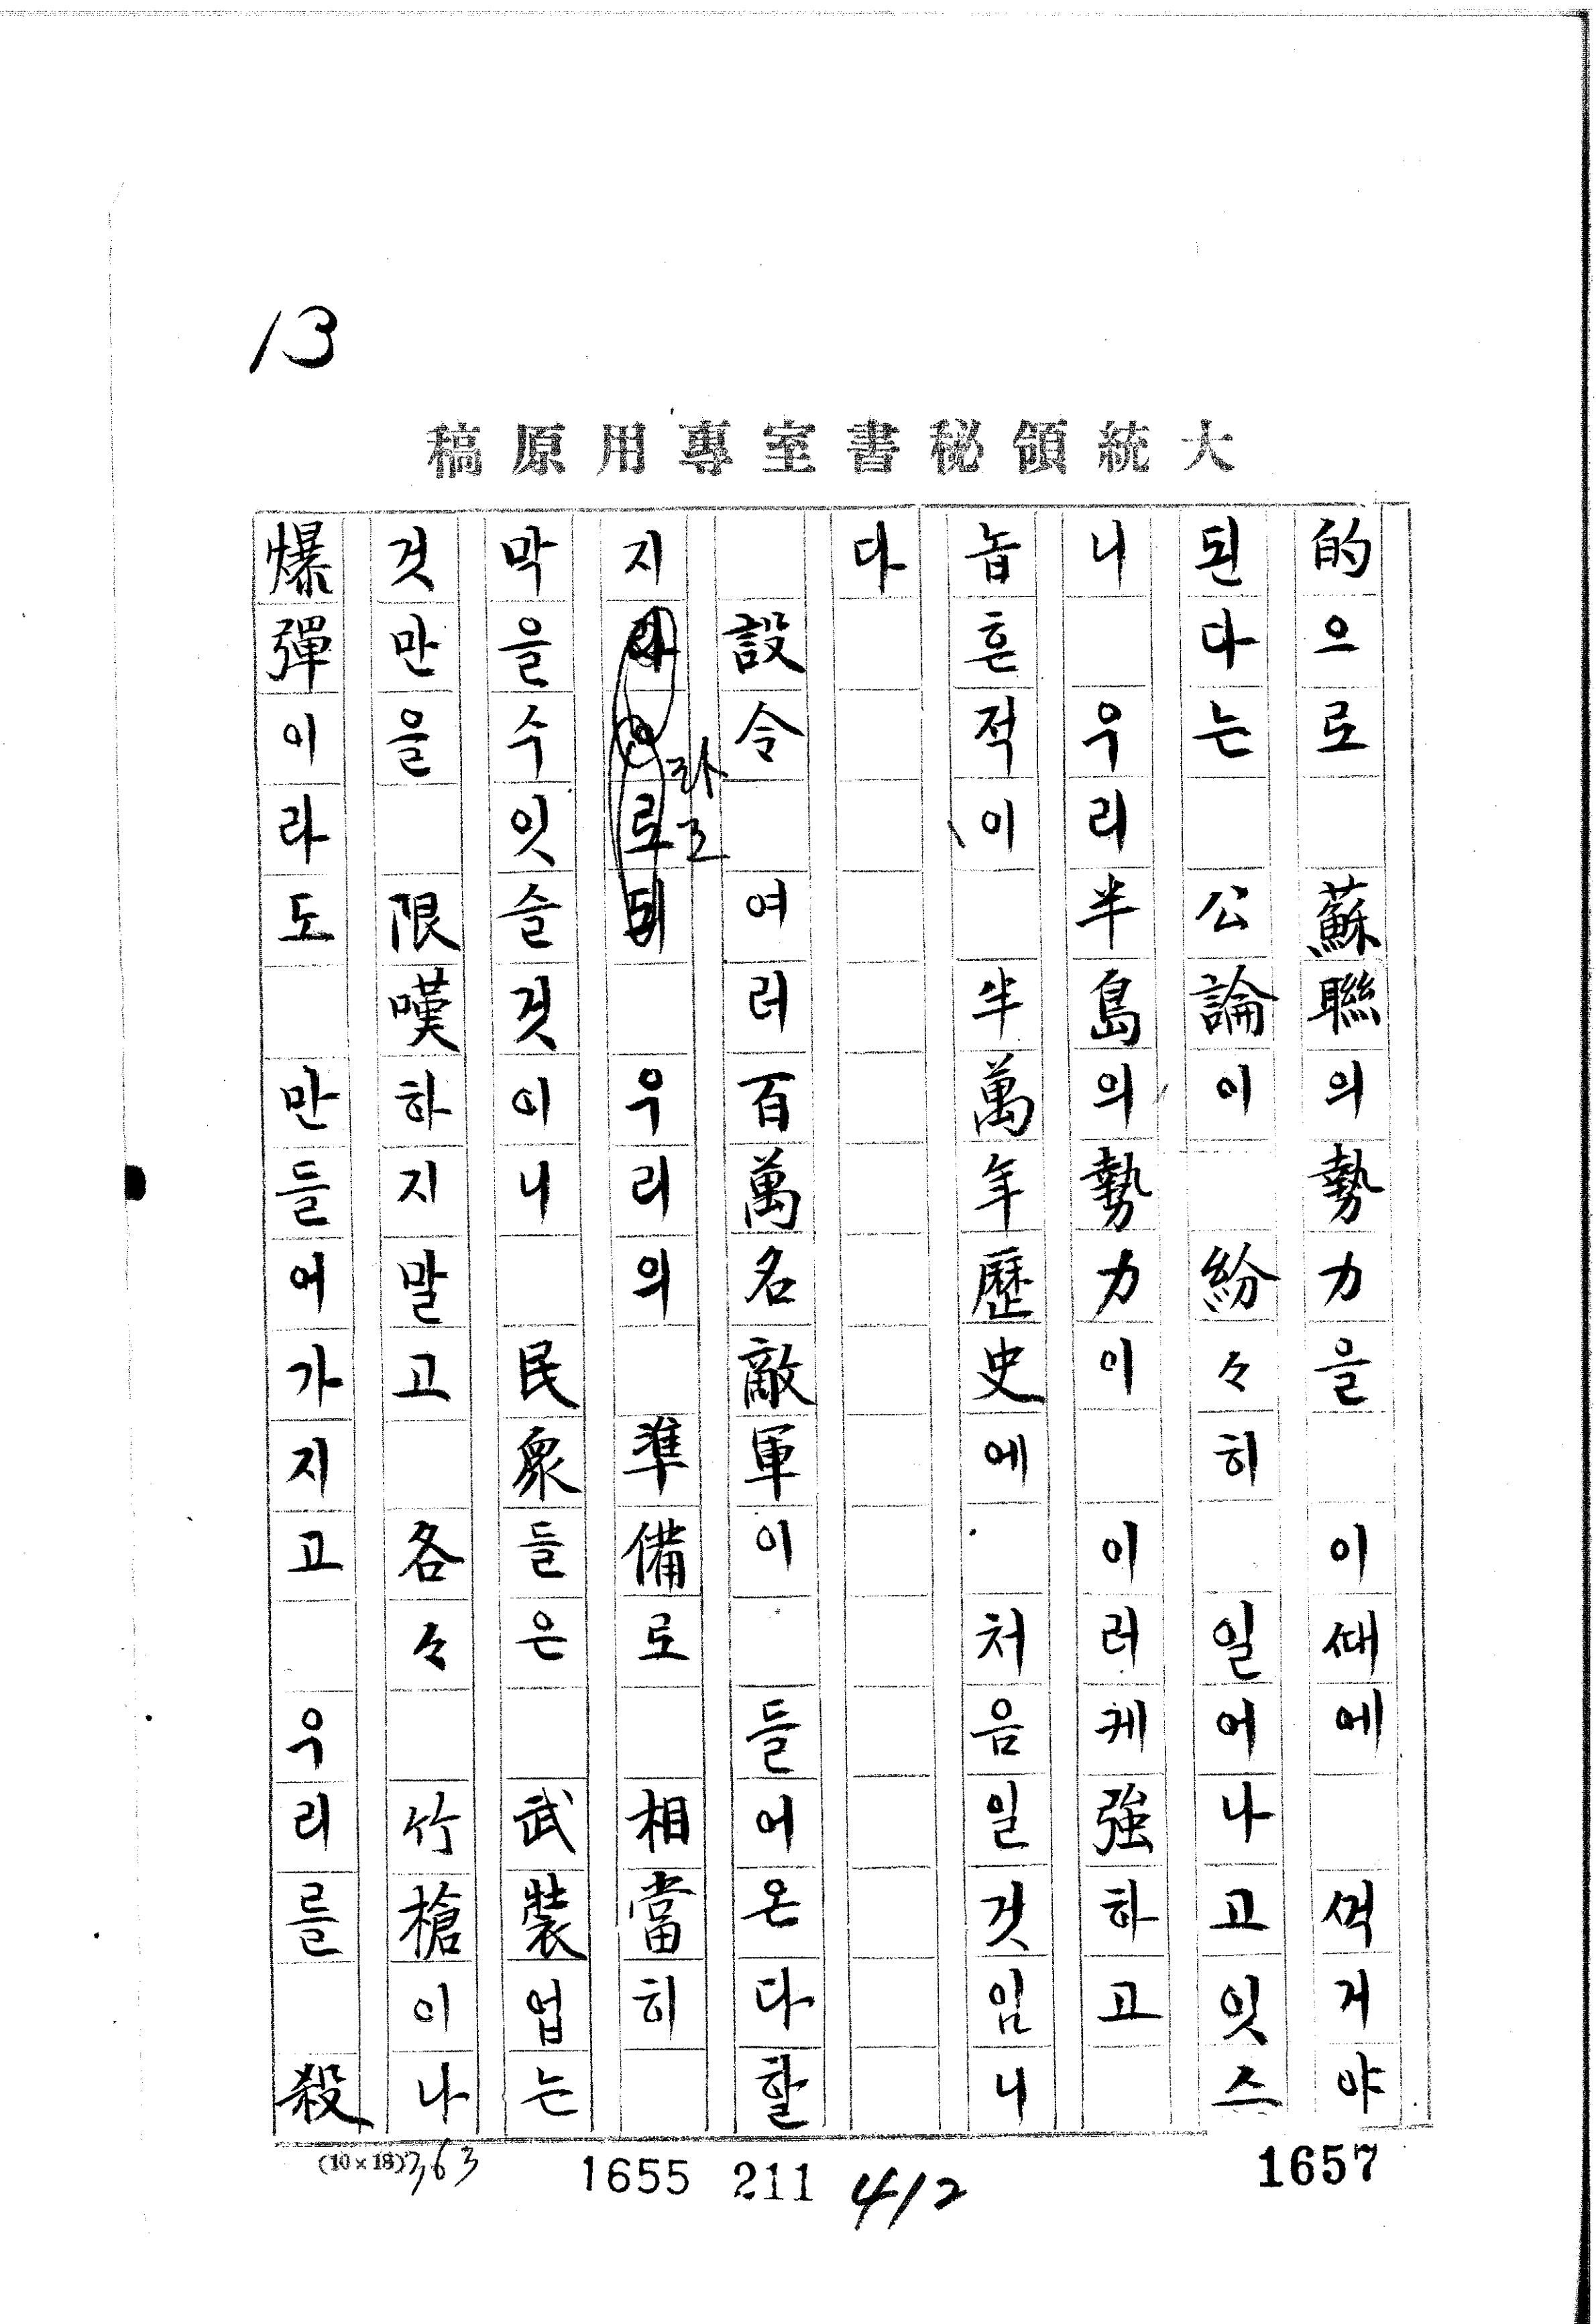 13
大統領秘書室專用原稿
的으로 蘇聯의勢力을 이ᄯᅢ에 ᄭᅥᆨ거야
된다는 公論이 紛々히 일어나고잇스
니 우리半島의勢力이 이러케強하고
놉흔적이 半萬年歷史에 처음일것임니
다
設令 여러百萬名敵軍이 들어온다할
지라도 우리의 準備로 相當히
막을수잇슬것이니 民衆들은 武裝업는
것만을 限嘆하지말고 各々 竹槍이나
爆彈이라도 만들어가지고 우리를 殺
(10×18) 763 1655 211 412 1657